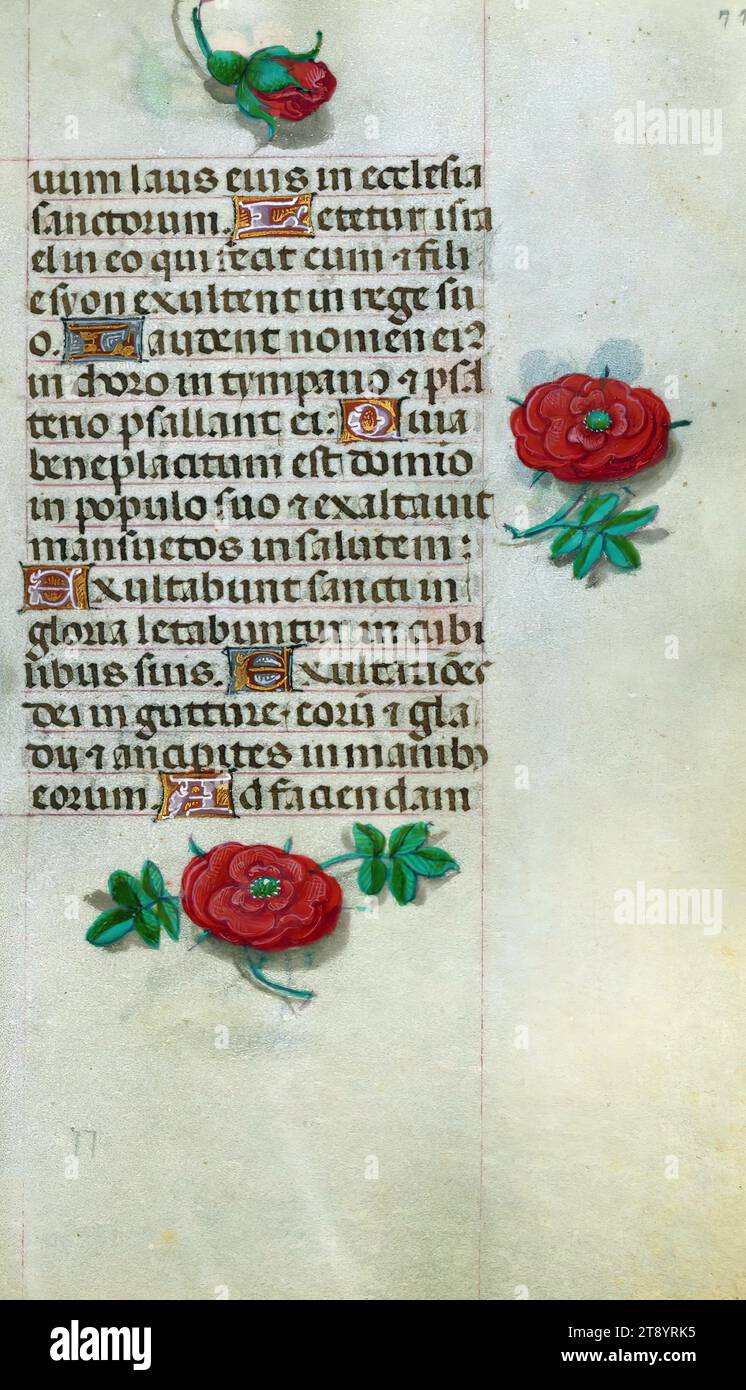 77
uum laus eius in ecclesia
sanctorum. Letetur isra
el in eo qui fecit eum ⁊ fili
e syon exultent in rege su
o. Laudent nomen eiꝰ
in choro in tympano ⁊ psal
terio psallant ei: Quia
beneplacitum est domio
in populo suo ⁊ exaltauit
mansuetos in salutem:
Exultabunt sancti in
gloria letabuntur in cubi
libus suis. Exultatiões
dei in gutture eorũ ⁊ gla
dii ⁊ ancipites in manibꝰ
eorum. Ad faciendam
77
alamy
alamy
alamy
alamy
Image ID: 2T8YRK5
www.alamy.com